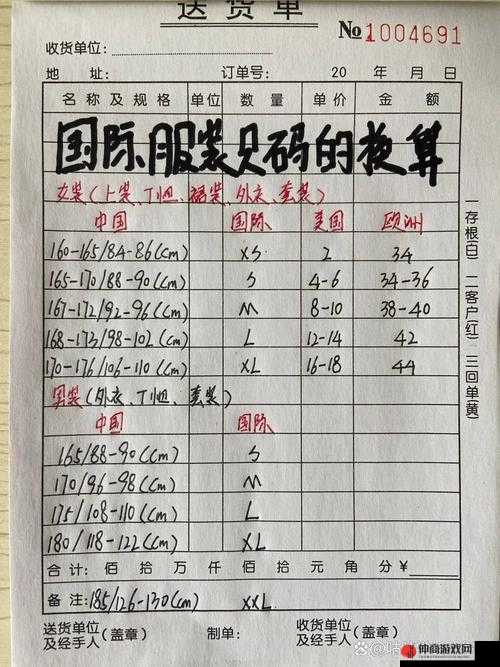 送货单
№1004691
收货单位:
地 址: 订单号: 20 年 月 日
名称及规格 单位 数量 单价 金额
国际服装尺码的换算
女装(上装、T恤、裙装、外衣、套装)
中国 国际 美国 欧洲
160-165/84-86(cm) XS 2 34
165-170/88-90(cm) S 4-6 34-36
167-172/92-96(cm) M 8-10 38-40
168-173/98-102(cm) L 12-14 42
170-176/106-110(cm) XL 16-18 44
男装(外衣、T恤、套装)
中国 国际
165/88-90(cm) S
170/96-98(cm) M
175/108-110(cm) L
180/118-122(cm) XL
合计: 佰 拾 万 仟 佰 拾 元 角 分 ¥
备注: 185/126-130(cm) XXL
送货单位及经手人(盖章) 制单: 收货单位及经手人
一存根(白) 二客户(红) 三回单(黄)
仲商游戏网